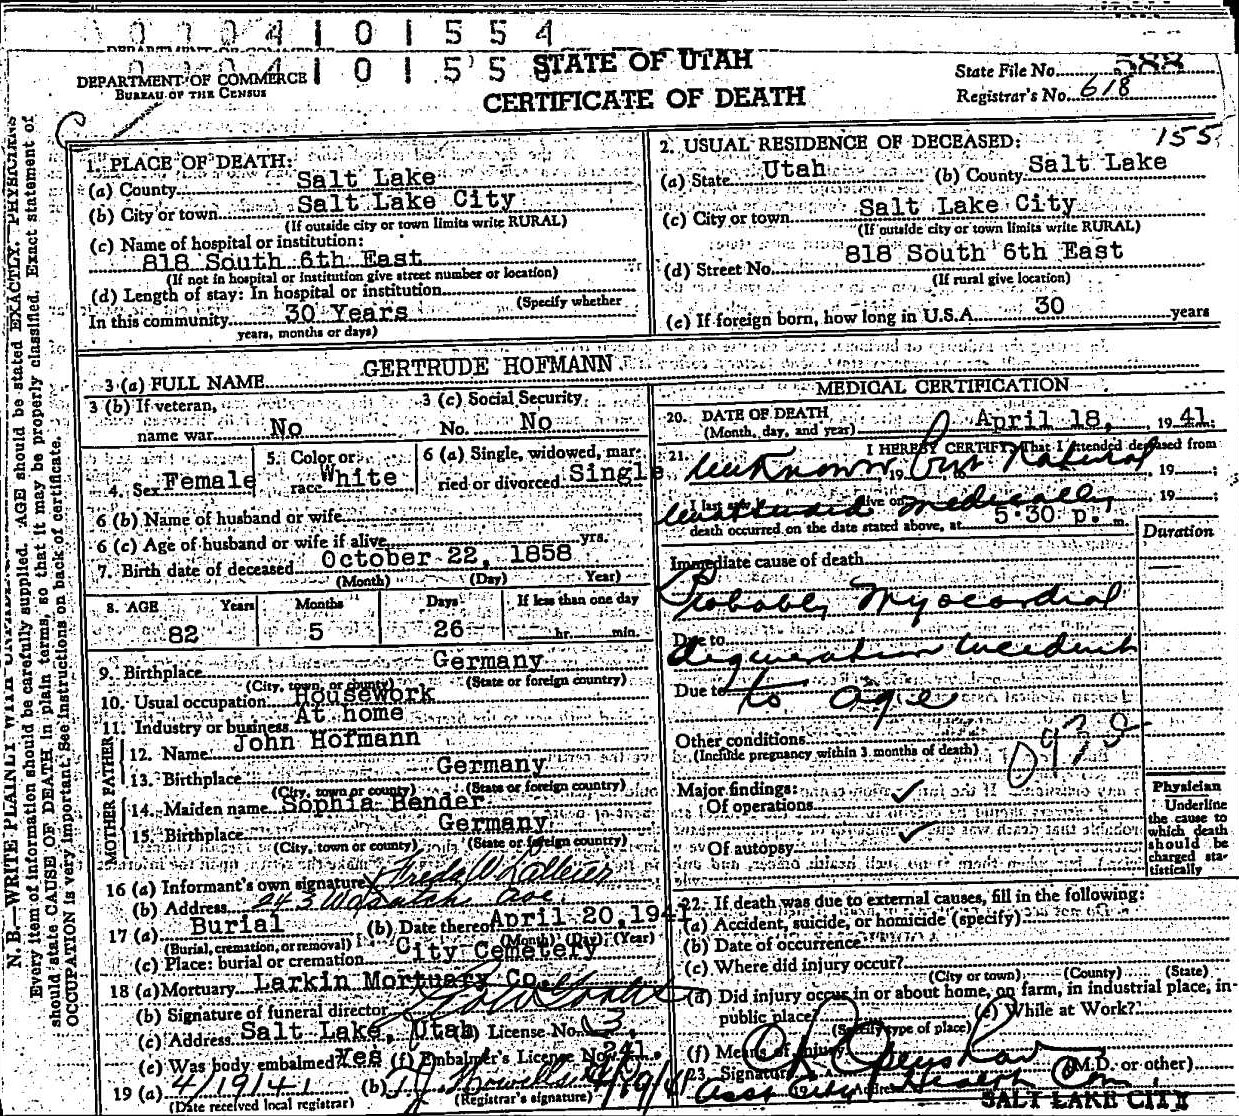 0 0 0 4 1 0 1 5 5 4
DEPARTMENT OF COMMERCE
BUREAU OF THE CENSUS
STATE OF UTAH
CERTIFICATE OF DEATH
State File No. 588
Registrar's No. 618
155
1. PLACE OF DEATH:
(a) County Salt Lake
(b) City or town Salt Lake City
(If outside city or town limits write RURAL)
(c) Name of hospital or institution:
818 South 6th East
(If not in hospital or institution give street number or location)
(d) Length of stay: In hospital or institution
(Specify whether
In this community 30 Years
years, months or days)
2. USUAL RESIDENCE OF DECEASED:
(a) State Utah (b) County Salt Lake
(c) City or town Salt Lake City
(If outside city or town limits write RURAL)
(d) Street No. 818 South 6th East
(If rural give location)
(e) If foreign born, how long in U.S.A. 30 years
3 (a) FULL NAME GERTRUDE HOFMANN
3 (b) If veteran,
name war No
3 (c) Social Security
No. No
4. Sex Female
5. Color or
race White
6 (a) Single, widowed, mar-
ried or divorced Single
6 (b) Name of husband or wife
6 (c) Age of husband or wife if alive yrs.
7. Birth date of deceased October 22, 1858
(Month) (Day) Year)
8. AGE Years Months Days If less than one day
82 5 26 hr. min.
9. Birthplace Germany
(City, town, or county) (State or foreign country)
10. Usual occupation Housework
11. Industry or business At home
FATHER
12. Name John Hofmann
13. Birthplace Germany
(City, town or county) (State or foreign country)
MOTHER
14. Maiden name Sophia Bender
15. Birthplace Germany
(City, town or county) (State or foreign country)
16 (a) Informant's own signature Freda W.
(b) Address 243 Wasatch Ave.
17 (a) Burial (b) Date thereof April 20, 1941
(Burial, cremation, or removal) (Month) (Day) (Year)
(c) Place: burial or cremation City Cemetery
18 (a) Mortuary Larkin Mortuary Co.
(b) Signature of funeral director
(c) Address Salt Lake, Utah License No. 3
(e) Was body embalmed? Yes (f) Embalmer's License No. 241
19 (a) 4/19/41 (b) 4/19/41
(Date received local registrar) (Registrar's signature)
MEDICAL CERTIFICATION
20. DATE OF DEATH
(Month, day, and year) April 18, 1941
21. I HEREBY CERTIFY That I attended deceased from
Unknown, 19 But Natural, 19
I last saw alive on, 19
unattended medically
death occurred on the date stated above, at 5:30 p. m.
Duration
Immediate cause of death
Probably Myocardial
Due to
degeneration incident
Due to
to age
Other conditions
(Include pregnancy within 3 months of death)
093
Major findings:
Of operations ✓
Of autopsy ✓
Physician
Underline
the cause to
which death
should be
charged sta-
tistically
22. If death was due to external causes, fill in the following:
(a) Accident, suicide, or homicide (specify)
(b) Date of occurrence
(c) Where did injury occur?
(City or town) (County) (State)
(d) Did injury occur in or about home, on farm, in industrial place, in
public place? (e) While at Work?
(Specify type of place)
(f) Means of injury
23. Signature Openshaw (M.D. or other)
Asst City Health Com.
Address
SALT LAKE CITY
N. B.—WRITE PLAINLY WITH
Every item of information should be carefully supplied. AGE should be stated EXACTLY. PHYSICIANS
should state CAUSE OF DEATH in plain terms, so that it may be properly classified. Exact statement of
OCCUPATION is very important. See instructions on back of certificate.